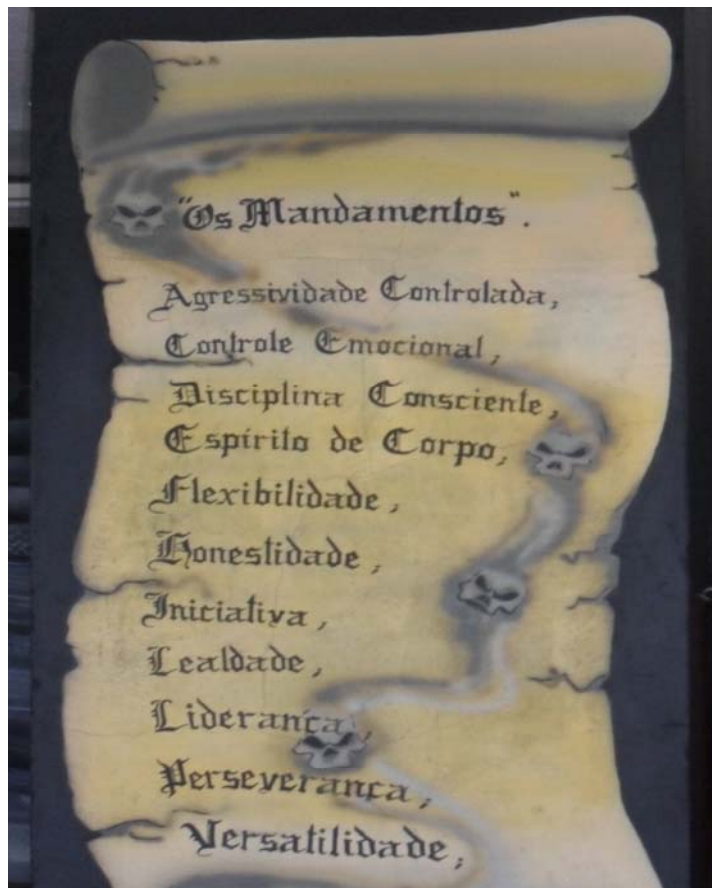 "Os Mandamentos".
Agressividade Controlada,
Controle Emocional,
Disciplina Consciente,
Espírito de Corpo,
Flexibilidade,
Honestidade,
Iniciativa,
Lealdade,
Liderança,
Perseverança,
Versatilidade,